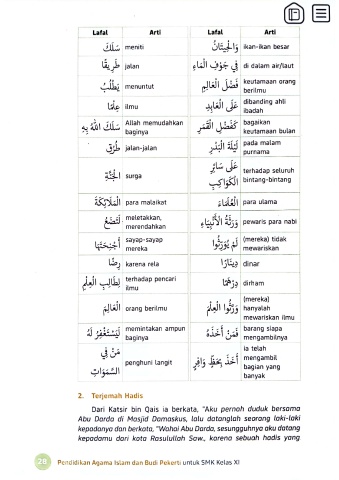 Lafal Arti Lafal Arti
سَلَكَ meniti وَالْحِيْتَانُ ikan-ikan besar
طَرِيقًا jalan فِي جَوْفِ الْمَاءِ di dalam air/laut
يَطْلُبُ menuntut فَضْلَ الْعَالِمِ keutamaan orang
berilmu
عِلْمًا ilmu عَلَى الْعَابِدِ dibanding ahli
ibadah
سَلَكَ اللهُ بِهِ Allah memudahkan
baginya كَفَضْلِ الْقَمَرِ bagaikan
keutamaan bulan
طُرُقِ jalan-jalan لَيْلَةَ الْبَدْرِ pada malam
purnama
الْجَنَّةِ surga عَلَى سَائِرِ
الْكَوَاكِبِ terhadap seluruh
bintang-bintang
الْمَلَائِكَةَ para malaikat الْعُلَمَاءَ para ulama
لَتَضَعُ meletakkan,
merendahkan وَرَثَةُ الْأَنْبِيَاءِ pewaris para nabi
أَجْنِحَتَهَا sayap-sayap
mereka لَمْ يُوَرِّثُوا (mereka) tidak
mewariskan
رِضًا karena rela دِينَارًا dinar
لِطَالِبِ الْعِلْمِ terhadap pencari
ilmu دِرْهَمًا dirham
الْعَالِمَ orang berilmu وَرَّثُوا الْعِلْمَ (mereka)
hanyalah
mewariskan ilmu
لَيَسْتَغْفِرُ لَهُ memintakan ampun
baginya فَمَنْ أَخَذَهُ barang siapa
mengambilnya
مَنْ فِي
السَّمَوَاتِ penghuni langit أَخَذَ بِحَظٍّ وَافِرٍ ia telah
mengambil
bagian yang
banyak
2. Terjemah Hadis
Dari Katsir bin Qais ia berkata, "Aku pernah duduk bersama
Abu Darda di Masjid Damaskus, lalu datanglah seorang laki-laki
kepadanya dan berkata, "Wahai Abu Darda, sesungguhnya aku datang
kepadamu dari kota Rasulullah Saw., karena sebuah hadis yang
28 Pendidikan Agama Islam dan Budi Pekerti untuk SMK Kelas XI